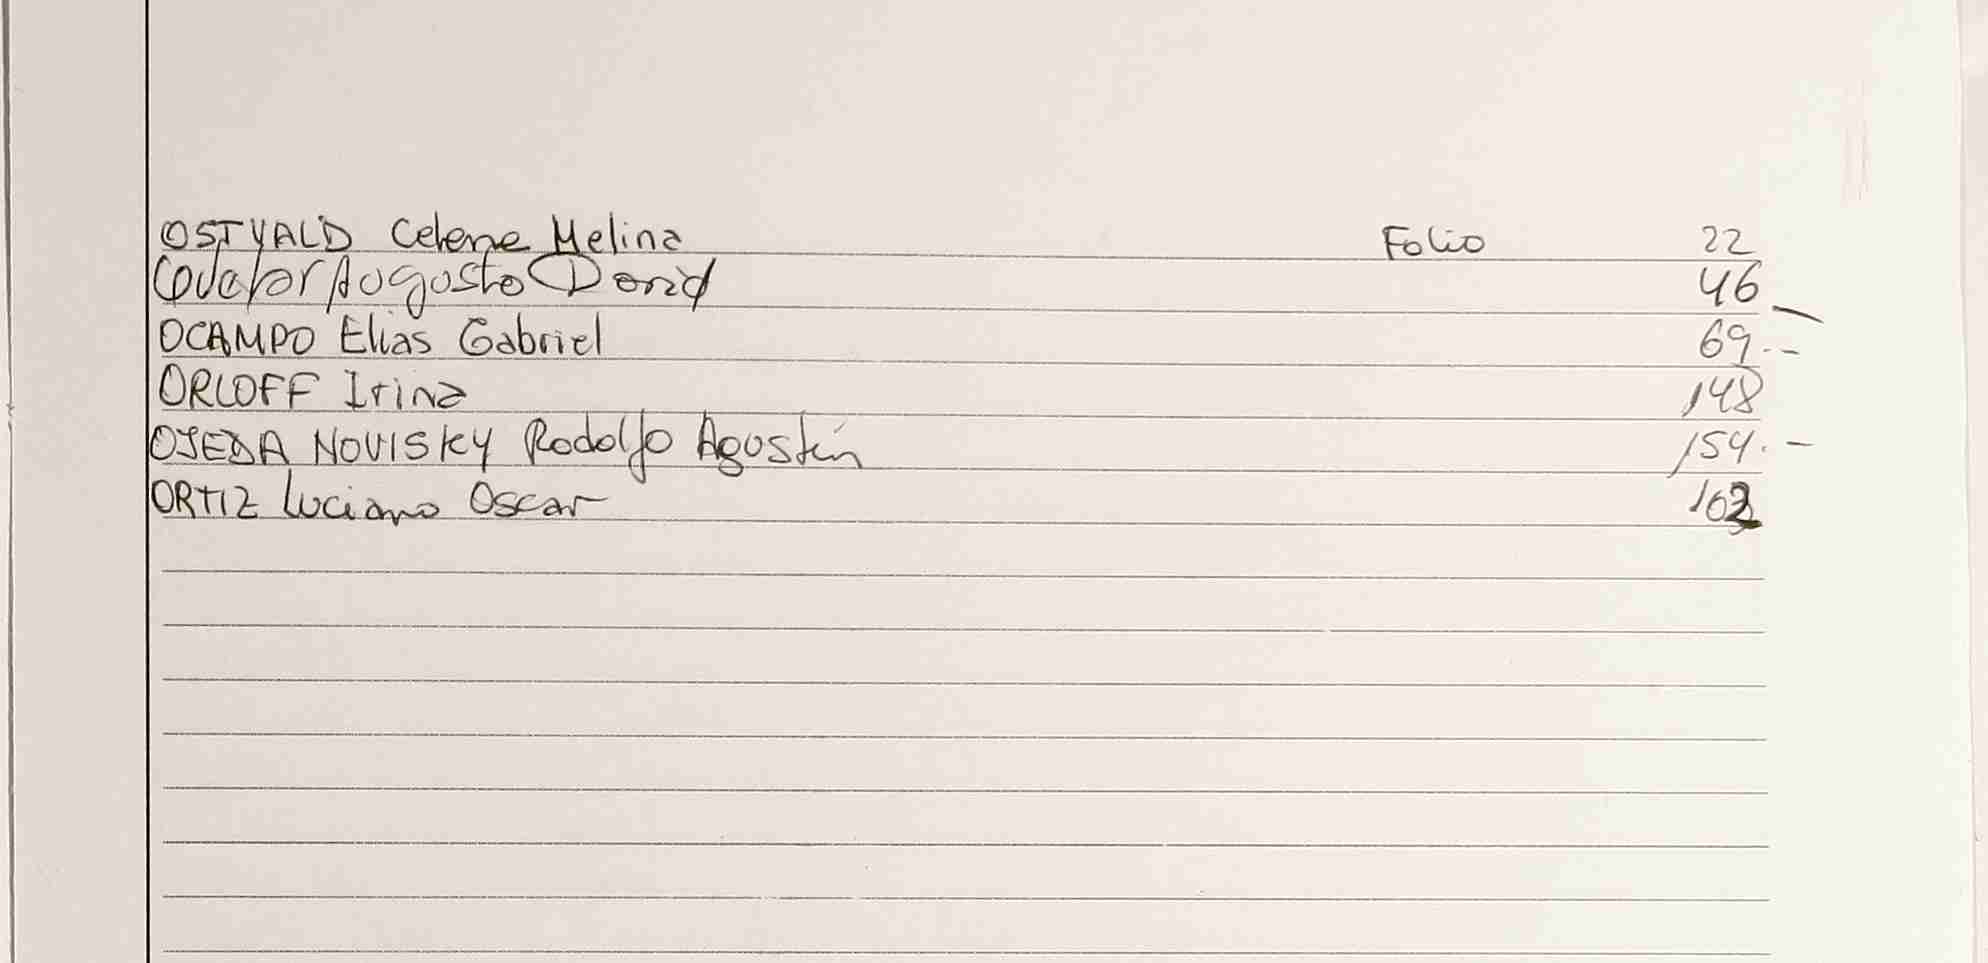 OSTVALD Celene Melina Folio 22
Augusto David 46
OCAMPO Elias Gabriel 69.-
ORLOFF Irina 148
OJEDA NOVISKY Rodolfo Agustín 154.-
ORTIZ Luciano Oscar 162